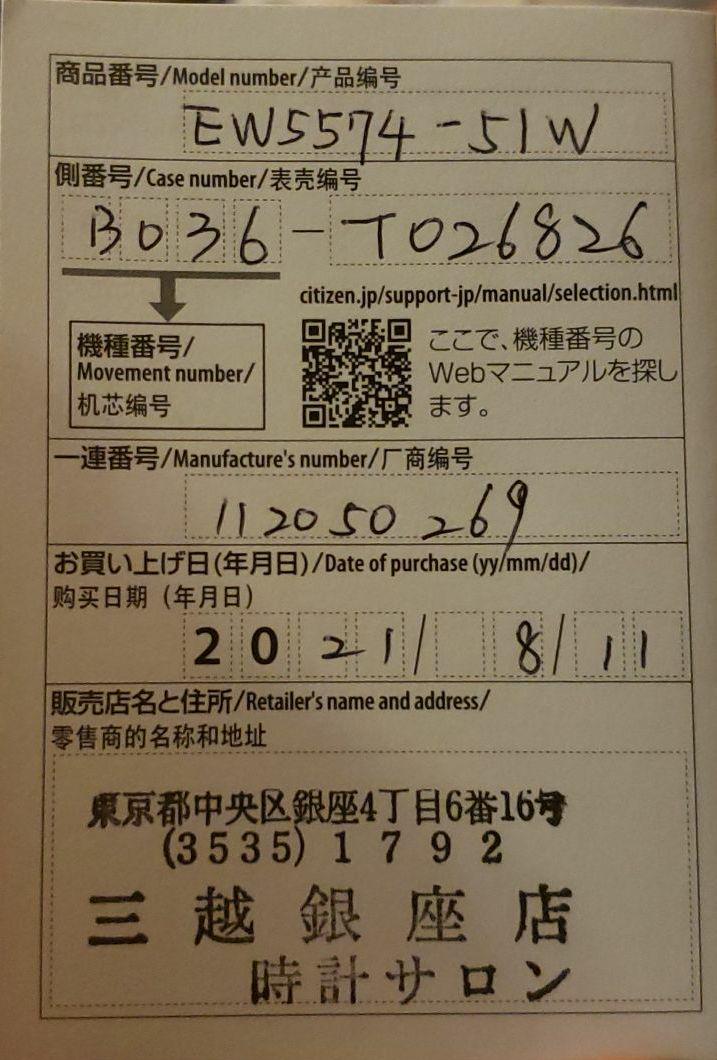 商品番号/Model number/产品编号
EW5574-51W
側番号/Case number/表壳编号
B036-T026826
citizen.jp/support-jp/manual/selection.html
機種番号/
Movement number/
机芯编号
ここで、機種番号の
Webマニュアルを探し
ます。
一連番号/Manufacture's number/厂商编号
112050269
お買い上げ日(年月日)/Date of purchase (yy/mm/dd)/
购买日期（年月日）
2021/8/11
販売店名と住所/Retailer's name and address/
零售商的名称和地址
東京都中央区銀座4丁目6番16号
(3535)1792
三越銀座店
時計サロン